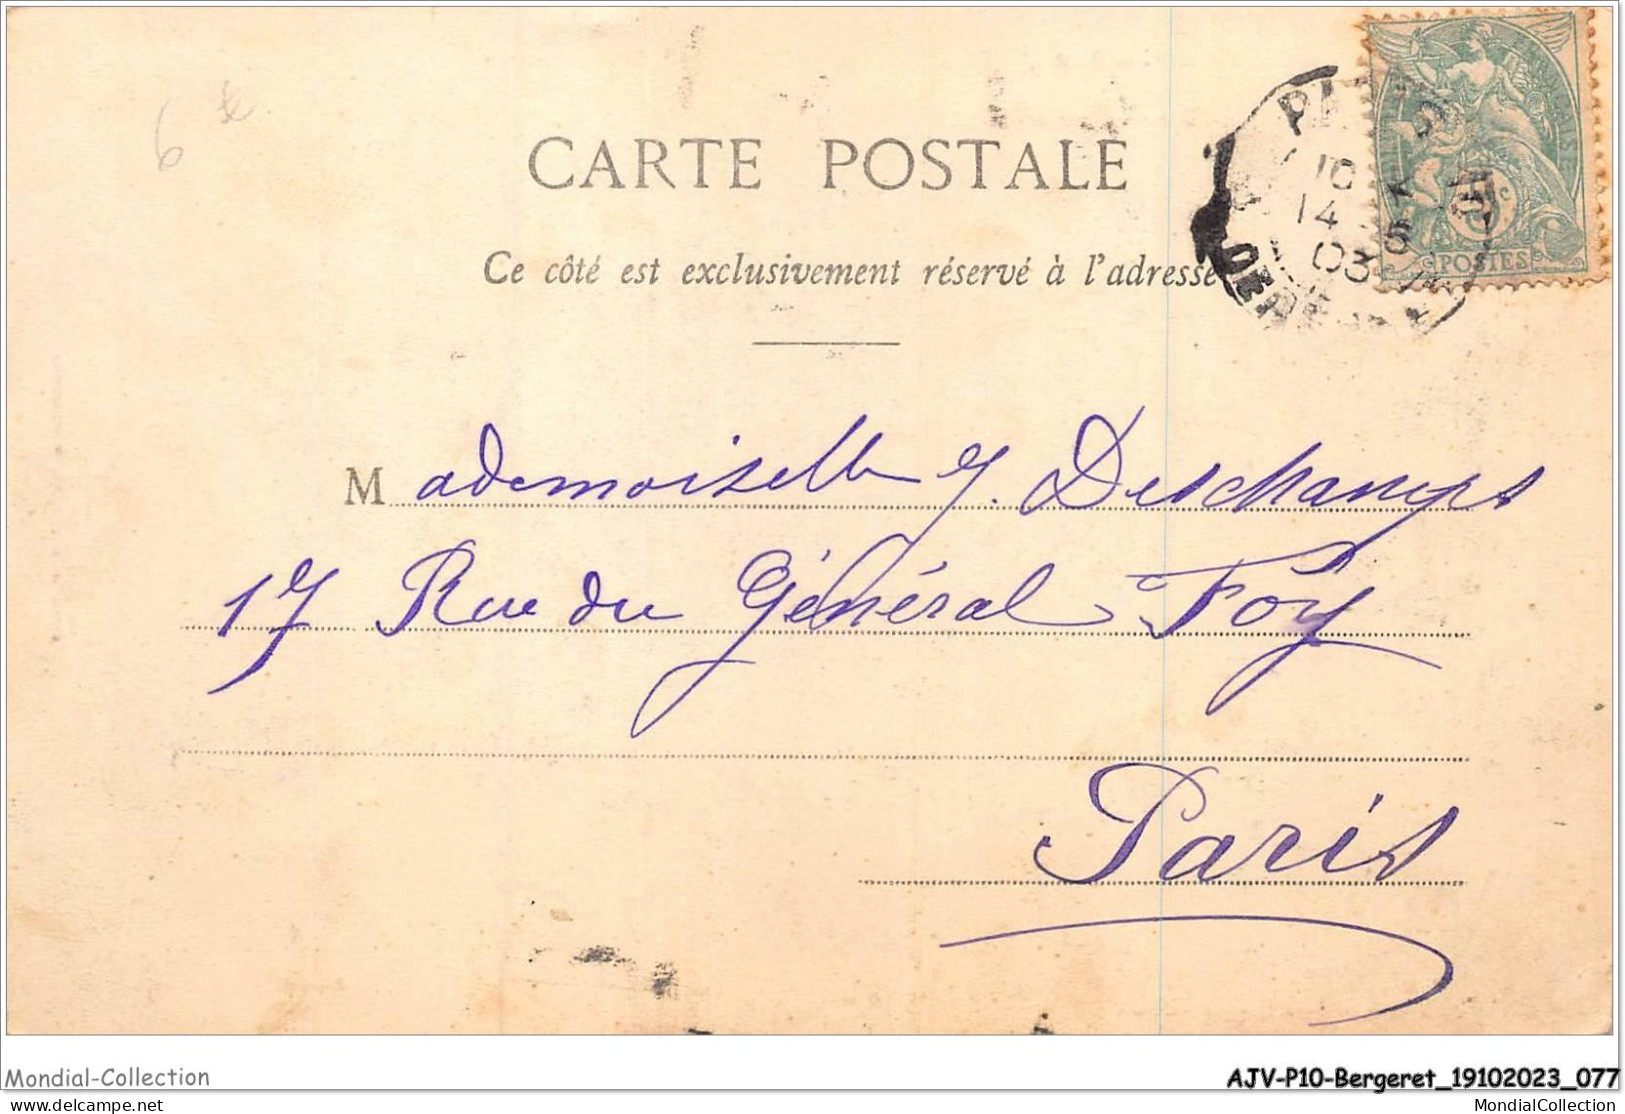 6
CARTE POSTALE
Ce côté est exclusivement réservé à l'adresse
PA
10
14
03
5c
POSTES
Mademoiselle Y. Deschamps
17 Rue du Général Foy
Paris
Mondial-Collection
AJV-P10-Bergeret_19102023_077
delcampe.net
MondialCollection